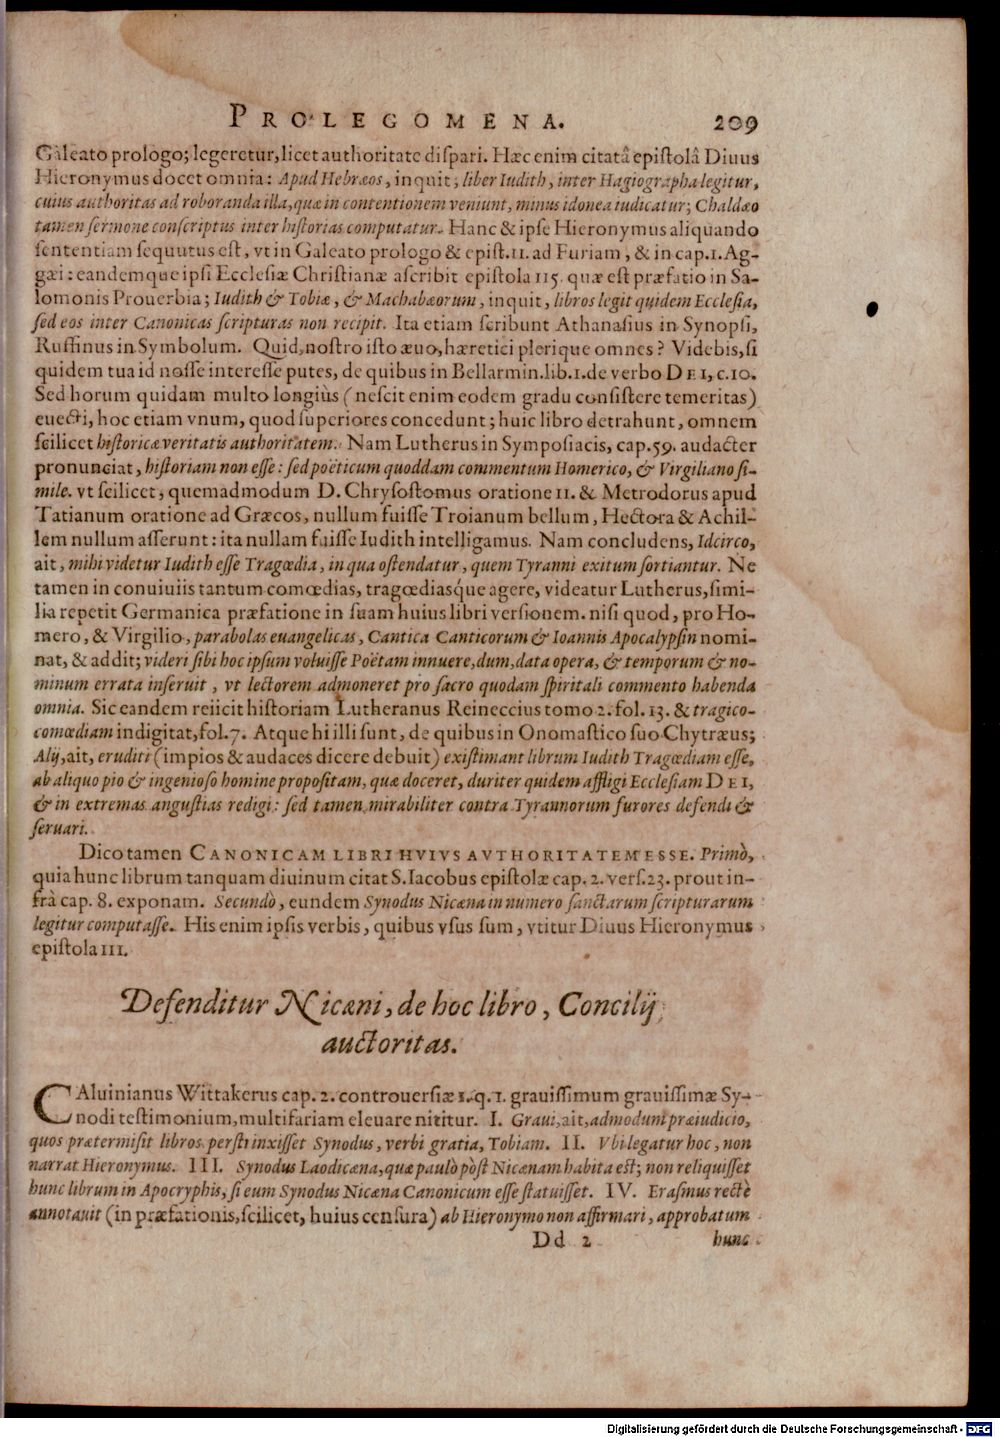 PROLEGOMENA. 209
Galeato prologo; legeretur, licet authoritate dispari. Hæc enim citatâ epistolâ Diuus
Hieronymus docet omnia: Apud Hebræos, inquit, liber Iudith, inter Hagiographa legitur,
cuius authoritas ad roboranda illa, quæ in contentionem veniunt, minus idonea iudicatur; Chaldæo
tamen sermone conscriptus inter historias computatur. Hanc & ipse Hieronymus aliquando
sententiam sequutus est, vt in Galeato prologo & epist. 11. ad Furiam, & in cap. 1. Ag-
gæi: eandemque ipsi Ecclesiæ Christianæ ascribit epistola 115. quæ est præfatio in Sa-
lomonis Prouerbia; Iudith & Tobiæ, & Machabæorum, inquit, libros legit quidem Ecclesia,
sed eos inter Canonicas scripturas non recipit. Ita etiam scribunt Athanasius in Synopsi,
Ruffinus in Symbolum. Quid, nostro isto æuo, hæretici plerique omnes? Videbis, si
quidem tua id nosse interesse putes, de quibus in Bellarmin. lib. 1. de verbo DEI, c. 10.
Sed horum quidam multo longiùs (nescit enim eodem gradu consistere temeritas)
euecti, hoc etiam vnum, quod superiores concedunt; huic libro detrahunt, omnem
scilicet historicæ veritatis authoritatem. Nam Lutherus in Symposiacis, cap. 59. audacter
pronunciat, historiam non esse: sed poëticum quoddam commentum Homerico, & Virgiliano si-
mile. vt scilicet, quemadmodum D. Chrysostomus oratione 11. & Metrodorus apud
Tatianum oratione ad Græcos, nullum fuisse Troianum bellum, Hectora & Achil-
lem nullum asserunt: ita nullam fuisse Iudith intelligamus. Nam concludens, Idcirco,
ait, mihi videtur Iudith esse Tragœdia, in qua ostendatur, quem Tyranni exitum sortiantur. Ne
tamen in conuiuiis tantum comœdias, tragœdiasque agere, videatur Lutherus, simi-
lia repetit Germanica præfatione in suam huius libri versionem. nisi quod, pro Ho-
mero, & Virgilio, parabolas euangelicas, Cantica Canticorum & Ioannis Apocalypsin nomi-
nat, & addit; videri sibi hoc ipsum voluisse Poëtam innuere, dum, data opera, & temporum & no-
minum errata inseruit, vt lectorem admoneret pro sacro quodam spiritali commento habenda
omnia. Sic eandem reiicit historiam Lutheranus Reineccius tomo 2. fol. 13. & tragico-
comœdiam indigitat, fol. 7. Atque hi illi sunt, de quibus in Onomastico suo Chytræus;
Alij, ait, eruditi (impios & audaces dicere debuit) existimant librum Iudith Tragœdiam esse,
ab aliquo pio & ingenioso homine propositam, quæ doceret, duriter quidem affligi Ecclesiam DEI,
& in extremas angustias redigi: sed tamen mirabiliter contra Tyrannorum furores defendi &
seruari.
Dico tamen CANONICAM LIBRI HVIVS AVTHORITATEM ESSE. Primò,
quia hunc librum tanquam diuinum citat S. Iacobus epistolæ cap. 2. vers. 23. prout in-
frà cap. 8. exponam. Secundò, eundem Synodus Nicæna in numero sanctarum scripturarum
legitur computasse. His enim ipsis verbis, quibus vsus sum, vtitur Diuus Hieronymus
epistola 111.
Defenditur Nicæni, de hoc libro, Concilij
auctoritas.
CAluinianus Wittakerus cap. 2. controuersiæ 1. q. 1. grauissimum grauissimæ Sy-
nodi testimonium, multifariam eleuare nititur. I. Graui, ait, admodum præiudicio,
quos prætermisit libros perstrinxisset Synodus, verbi gratia, Tobiam. II. Vbi legatur hoc, non
narrat Hieronymus. III. Synodus Laodicæna, quæ paulò pòst Nicænam habita est; non reliquisset
hunc librum in Apocryphis, si eum Synodus Nicæna Canonicum esse statuisset. IV. Erasmus rectè
annotauit (in præfationis, scilicet, huius censura) ab Hieronymo non affirmari, approbatum
Dd 2 hunc
Digitalisierung gefördert durch die Deutsche Forschungsgemeinschaft - DFG